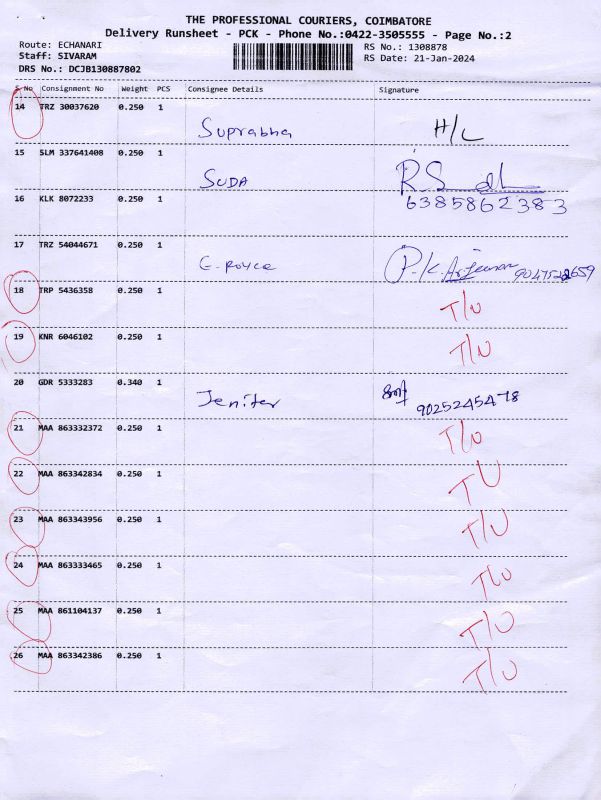 THE PROFESSIONAL COURIERS, COIMBATORE
Delivery Runsheet - PCK - Phone No.:0422-3505555 - Page No.:2
Route: ECHANARI RS No.: 1308878
Staff: SIVARAM RS Date: 21-Jan-2024
DRS No.: DCJB130887802
S No Consignment No Weight PCS Consignee Details Signature
14 TRZ 30037620 0.250 1
Suprabha H/L
15 SLM 337641408 0.250 1
SUDA R.S
16 KLK 8072233 0.250 1 6385862383
17 TRZ 54044671 0.250 1
G. Royce P.K. Arjunan 9047522659
18 TRP 5436358 0.250 1
T/U
19 KNR 6046102 0.250 1
T/U
20 GDR 5333283 0.340 1
Jenifer 9025245478
21 MAA 863332372 0.250 1
T/U
22 MAA 863342834 0.250 1
T/U
23 MAA 863343956 0.250 1
T/U
24 MAA 863333465 0.250 1
T/U
25 MAA 861104137 0.250 1
T/U
26 MAA 863342386 0.250 1
T/U